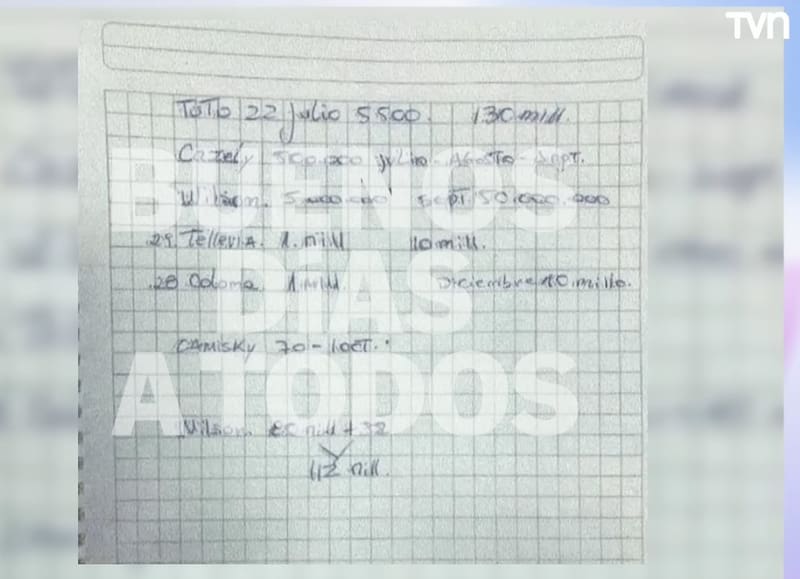 TVN
TOTO 22 Julio 5500. 130 mill.
Cazely 500.000 Julio - Agosto - Sept.
Wilson. 5.000.000 Sept. 150.000.000
29. Tellería. 1. mill 110 mill.
28 Coloma 1 mill. Diciembre 10. mills.
CAMISKY 70 - 10CT.
Wilson. 80 mill + 32
112 mill.
BUENOS
DÍAS
A TODOS